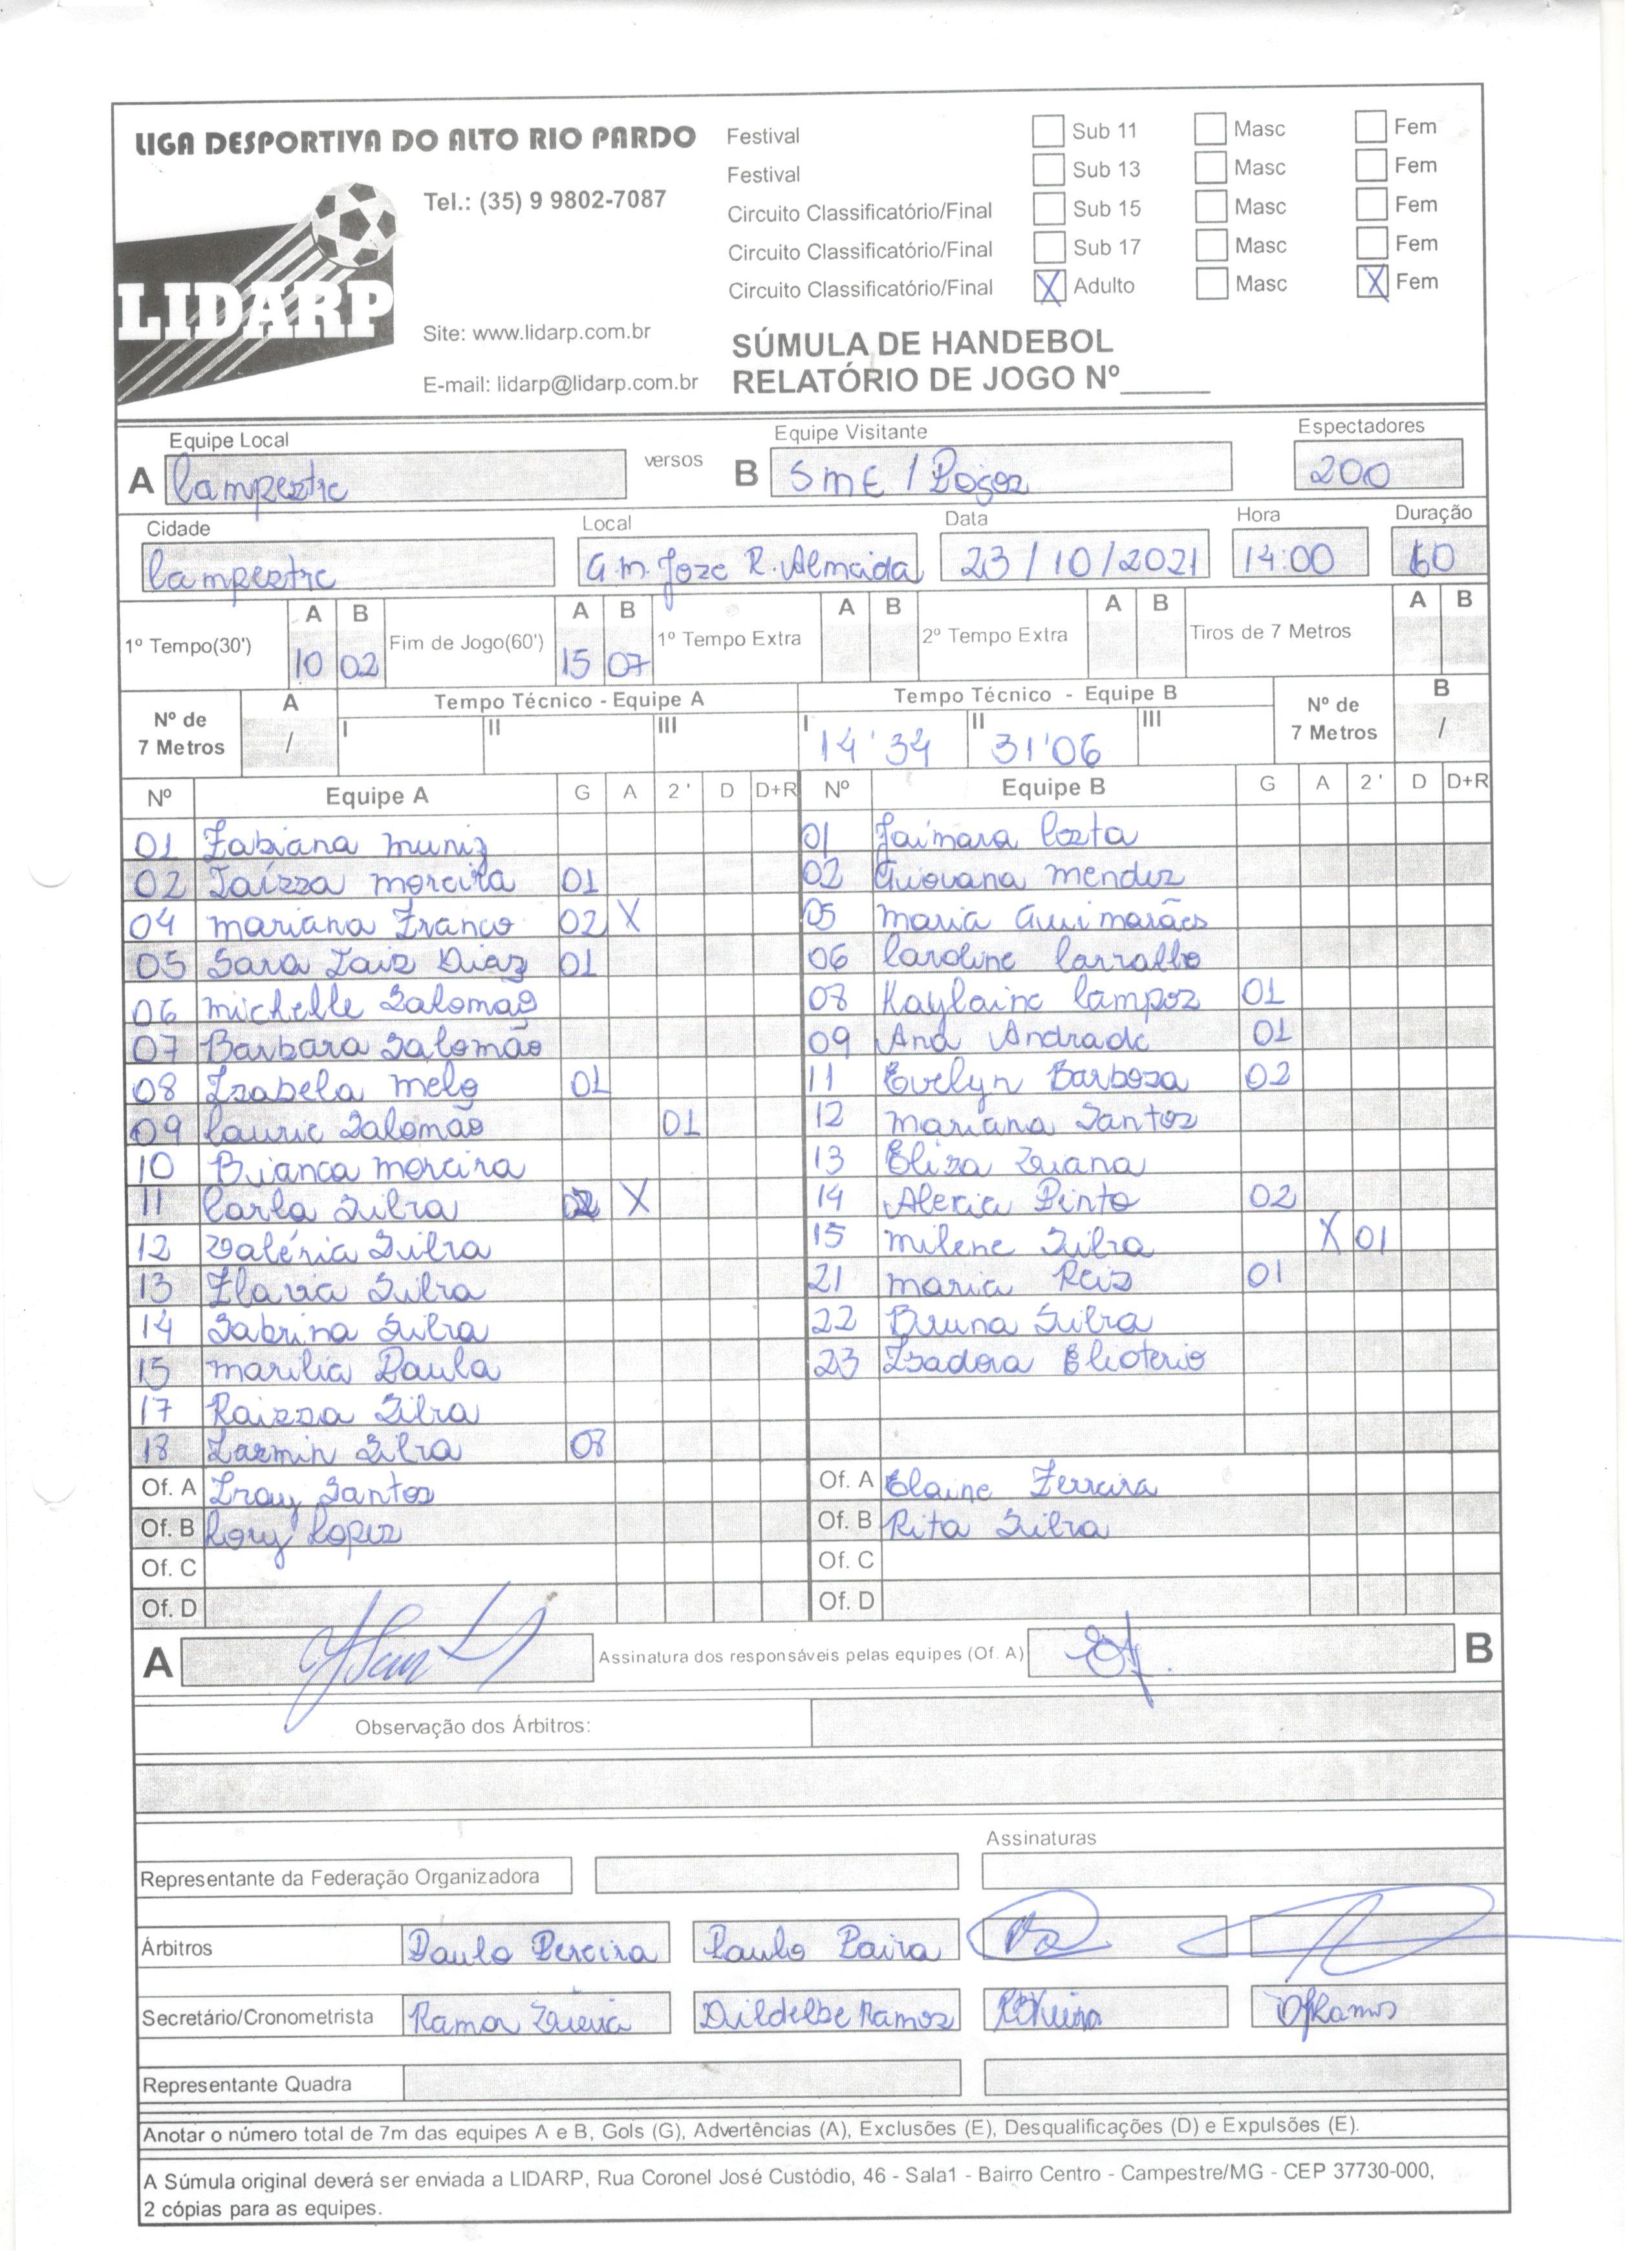 LIGA DESPORTIVA DO ALTO RIO PARDO
Tel.: (35) 9 9802-7087
LIDARP
Site: www.lidarp.com.br
E-mail: lidarp@lidarp.com.br
Festival Sub 11 Masc Fem
Festival Sub 13 Masc Fem
Circuito Classificatório/Final Sub 15 Masc Fem
Circuito Classificatório/Final Sub 17 Masc Fem
Circuito Classificatório/Final X Adulto Masc X Fem
SÚMULA DE HANDEBOL
RELATÓRIO DE JOGO Nº
Equipe Local Equipe Visitante Espectadores
A Campestre versos B SME / Poços 200
Cidade Local Data Hora Duração
Campestre G.M. Jose R. Almeida 23/10/2021 14:00 60
A B A B A B A B A B
1º Tempo(30') 10 02 Fim de Jogo(60') 15 07 1º Tempo Extra 2º Tempo Extra Tiros de 7 Metros
Nº de 7 Metros A / Tempo Técnico - Equipe A Tempo Técnico - Equipe B Nº de 7 Metros B /
I II III I 14'34 II 31'06 III
Nº Equipe A G A 2' D D+R Nº Equipe B G A 2' D D+R
01 Fabiana Muniz 01 Jaimara Costa
02 Taissa Moreira 01 02 Giovana Mendes
04 Mariana Franco 02 X 05 Maria Guimarães
05 Sara Lais Dias 01 06 Caroline Carvalho
06 Michelle Salomão 08 Kaylaine Campos 01
07 Barbara Salomão 09 Ana Andrade 01
08 Isabela Melo 01 11 Evelyn Barbosa 02
09 Laurie Salomão 01 12 Mariana Santos
10 Bianca Moreira 13 Elisa Viana
11 Carla Silva 02 X 14 Alexia Pinto 02
12 Valéria Silva 15 Milene Silva X 01
13 Flavia Silva 21 Maria Reis 01
14 Sabrina Silva 22 Bruna Silva
15 Marilia Paula 23 Isadora Elioterio
17 Raissa Silva
18 Iasmin Silva 08
Of. A Santos Of. A Elaine Ferreira
Of. B Lopes Of. B Rita Silva
Of. C Of. C
Of. D Of. D
A Assinatura dos responsáveis pelas equipes (Of. A) B
Observação dos Árbitros:
Assinaturas
Representante da Federação Organizadora
Árbitros Paulo Pereira Paulo Paiva
Secretário/Cronometrista Ramon Vieira Dildelbe Ramos
Representante Quadra
Anotar o número total de 7m das equipes A e B, Gols (G), Advertências (A), Exclusões (E), Desqualificações (D) e Expulsões (E).
A Súmula original deverá ser enviada a LIDARP, Rua Coronel José Custódio, 46 - Sala1 - Bairro Centro - Campestre/MG - CEP 37730-000,
2 cópias para as equipes.